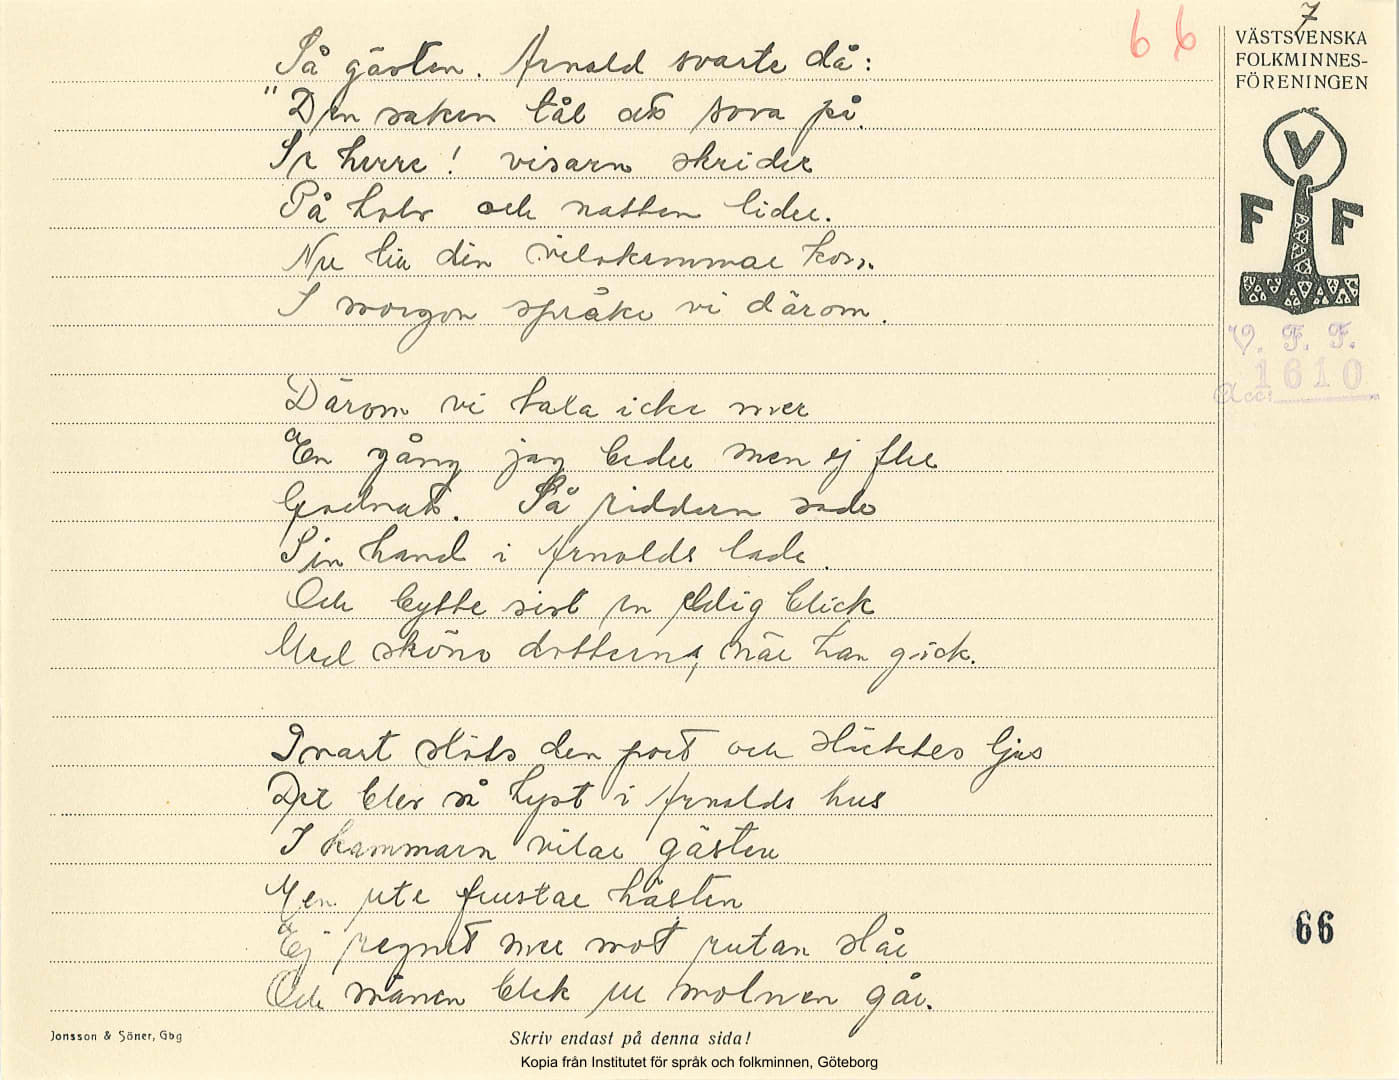 66
7
VÄSTSVENSKA
FOLKMINNES-
FÖRENINGEN
V
F F
V. F. F.
1610
Acc:
Så gästen. Arnold svarte då:
"Den saken tål att sova på.
Se herre! visarn skrider
På tolv och natten lider.
Nu till din vilokammar kom.
I morgon språka vi därom.
Därom vi tala icke mer
En gång jag beder men ej fler
Godnatt. Så riddern sade
Sin hand i Arnolds lade.
Och bytte sist en eldig blick
Med sköna dottern, när han gick.
Snart slöts den port och släcktes ljus
Det blev så tyst i Arnolds hus
I kammarn vilar gästen
Men ute frustar hästen
Ej regnet mer mot rutan slår
Och månen blek ur molnen går.
66
Jonsson & Söner, Gbg
Skriv endast på denna sida!
Kopia från Institutet för språk och folkminnen, Göteborg